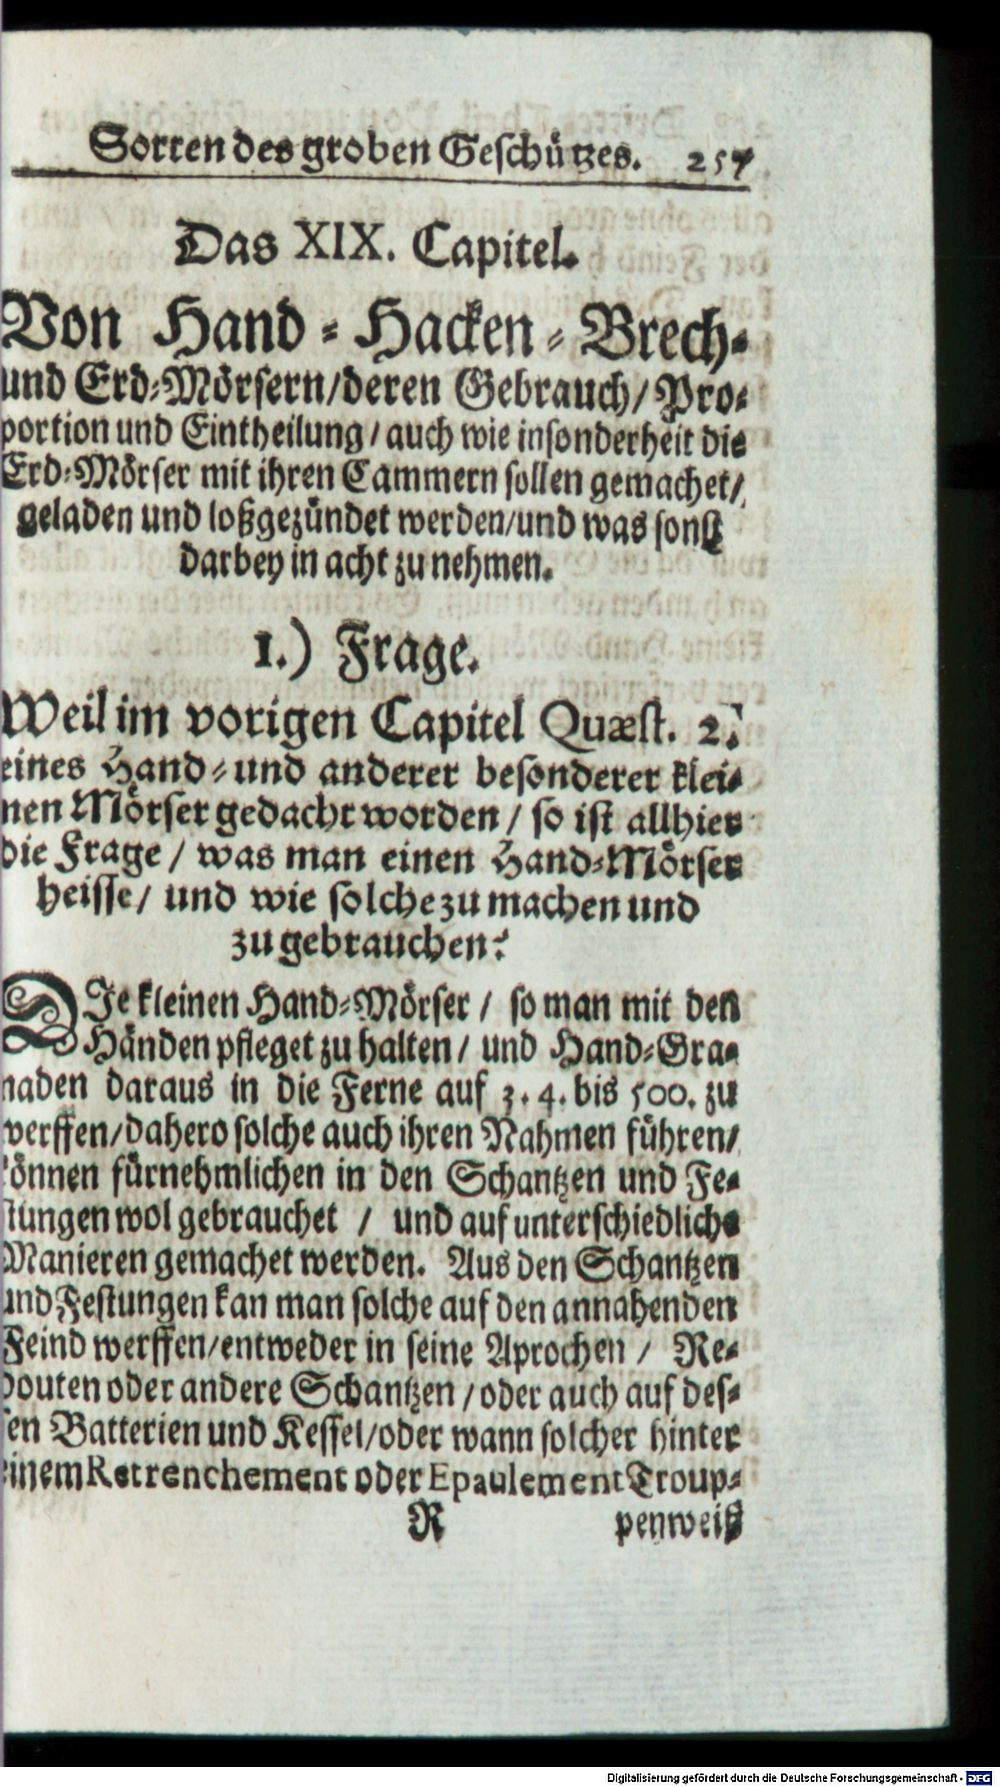 Sorten des groben Geschützes. 257
Das XIX. Capitel.
Von Hand-Hacken-Brech-
und Erd-Mörsern/deren Gebrauch/Pro-
portion und Eintheilung/auch wie insonderheit die
Erd-Mörser mit ihren Cammern sollen gemachet/
geladen und loßgezündet werden/und was sonst
darbey in acht zu nehmen.
1.) Frage.
Weil im vorigen Capitel Quæst. 2.
eines Hand-und anderer besonderer klei-
nen Mörser gedacht worden/so ist allhier
die Frage/was man einen Hand-Mörser
heisse/und wie solche zu machen und
zu gebrauchen?
DIe kleinen Hand-Mörser/so man mit den
Händen pfleget zu halten/und Hand-Gra-
naden daraus in die Ferne auf 3. 4. bis 500. zu
werffen/dahero solche auch ihren Nahmen führen/
können fürnehmlichen in den Schantzen und Fe-
stungen wol gebrauchet / und auf unterschiedliche
Manieren gemachet werden. Aus den Schantzen
und Festungen kan man solche auf den annahenden
Feind werffen/entweder in seine Aprochen / Re-
douten oder andere Schantzen/oder auch auf des-
sen Batterien und Kessel/oder wann solcher hinter
einem Retrenchement oder Epaulement Troup-
R penweiß
Digitalisierung gefördert durch die Deutsche Forschungsgemeinschaft - DFG